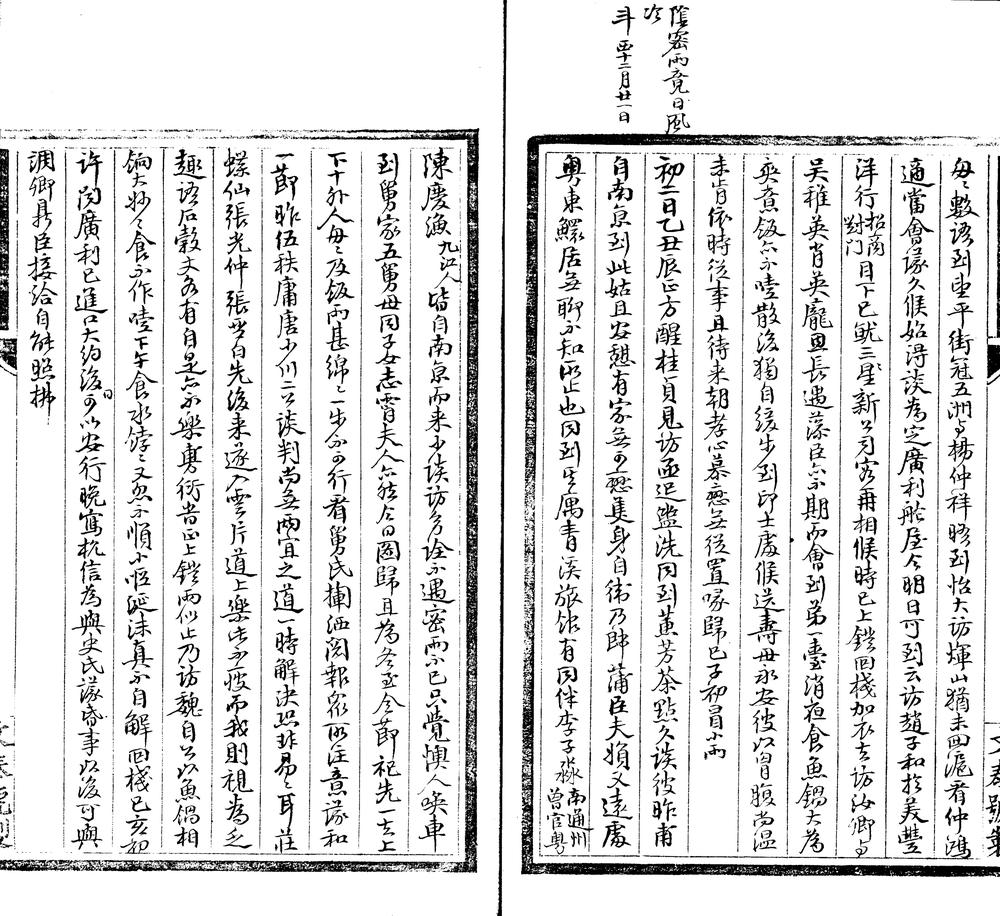 每每數語到望平街冠五洲与楊仲祥晤到怡大訪煇山猶未回滬看仲鴻
適當會議久候始得談為定廣利船座今明日可到云訪趙子和於美豐
洋行招商對门目下已就三星新公司客再相候時已上鐙回棧加衣去訪汝卿与
吴稚英肖英龐圓長遇藻臣亦不期而會到弟一臺消夜食魚鍋大為
爽意飯亦不噎散後猶自緩步到印士處候送壽母永安彼以冒腹尚温
未肯依時從事且待来朝孝心慕戀無從置喙歸已子初冒小雨
陰密雨竟日風
冷
斗 西十二月廿一日
初二日乙丑辰正方醒桂貞見訪亟起盥洗同到薰芳茶點久談彼昨甫
自南京到此姑且安憩有家無可戀隻身自衛乃歸蒲臣夫嬪又遠處
粤東鰥居無聊不知所止也同到其寓青溪旅館有同伴李子淼南通州曾官粤
陳慶漁九江人皆自南京而来少談訪多途不遇密雨不已只覺懊人喚車
到舅家五舅母同子女志霄夫人亦能今日圖歸且為冬至令節祀先去上
下十外人每每及飯雨甚綿綿一步不可行看舅氏摴洒閱報衆所注意議和
一節昨伍秩庸唐少川二公談判尚無兩宜之道一時解決恐非易易耳莊
蝶仙張光仲張班白先後来遂入雲片道上樂此不疲而我則視為乏
趣語石穀文各有自是亦不樂専衍甞正上鐙雨似止乃訪魏自公以魚鍋相
餉大妙大食不作噎下午食水餑餑又忽不順小嘔涎沫真不自解回棧已亥初
許聞廣利已進口大約後日可以安行晚寫杭信為與史氏議昏事以後可與
澗卿鼎臣接洽自能照拂